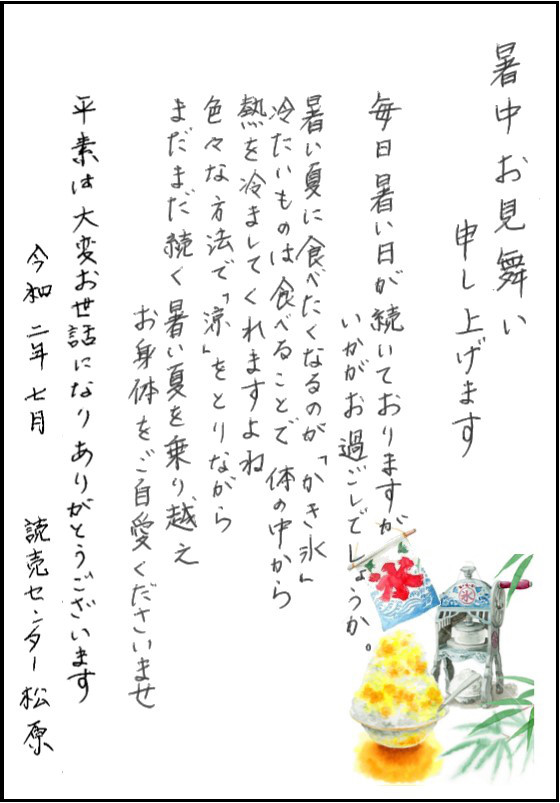 暑中お見舞い
申し上げます
毎日暑い日が続いておりますが
いかがお過ごしでしょうか。
暑い夏に食べたくなるのが「かき氷」
冷たいものは食べることで体の中から
熱を冷ましてくれますよね
色々な方法で「涼」をとりながら
まだまだ続く暑い夏を乗り越え
お身体をご自愛くださいませ
平素は大変お世話になりありがとうございます
令和二年七月
読売センター松原
氷